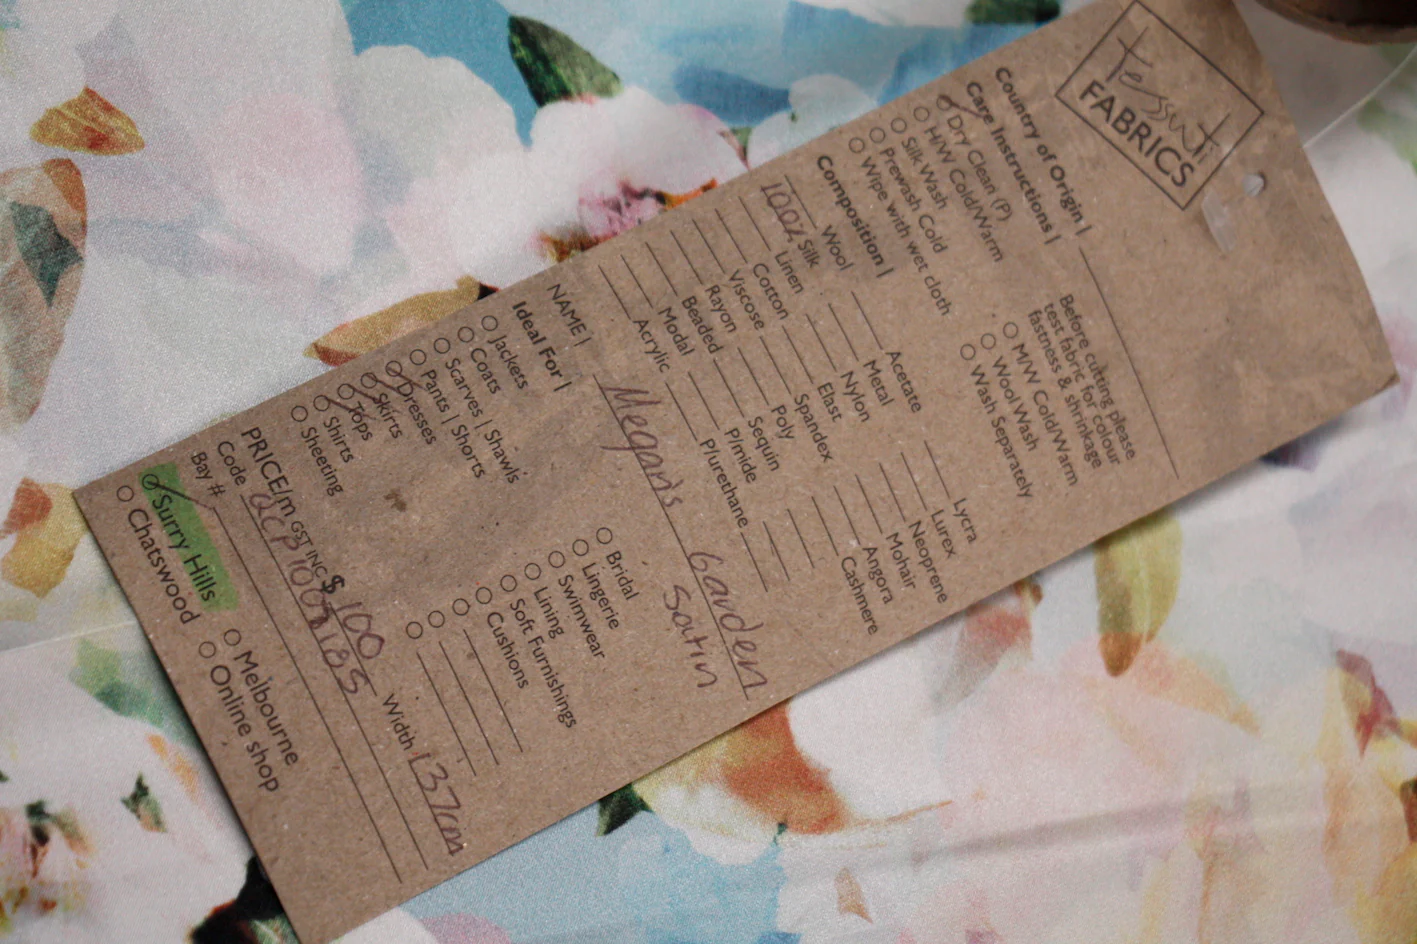 Tessuti
FABRICS
Country of Origin |
Care Instructions |
Dry Clean (P)
H/W Cold/Warm
Silk Wash
Prewash Cold
Wipe with wet cloth
Before cutting please
test fabric for colour
fastness & shrinkage
M/W Cold/Warm
Wool Wash
Wash Separately
Composition |
Wool Acetate Lycra
100% Silk Metal Lurex
Linen Nylon Neoprene
Cotton Elast Mohair
Viscose Spandex Angora
Rayon Poly Cashmere
Beaded Sequin
Modal P/mide
Acrylic P/urethane
NAME | Megan's Garden
Satin
Ideal For |
Jackets
Coats
Scarves | Shawls
Pants | Shorts
Dresses
Skirts
Tops
Shirts
Sheeting
Bridal
Lingerie
Swimwear
Lining
Soft Furnishings
Cushions
PRICE/m GST INC $ 100 Width 137cm
Code
Bay #
Surry Hills
Chatswood
Melbourne
Online shop